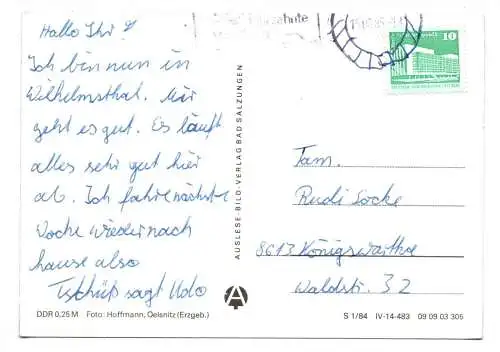 Hallo Ihr!
Ich bin nun in
Wilhelmsthal. Mir
geht es gut. Es läuft
alles sehr gut hier
ab. Ich fahre nächste
Woche wieder nach
hause also
Tschüß sagt Udo
DDR 0,25 M Foto: Hoffmann, Oelsnitz (Erzgeb.)
AUSLESE-BILD-VERLAG BAD SALZUNGEN
10
Fam.
Rudi Socke
8613 Königswartha
Waldstr. 32
S 1/84 IV-14-483 09 09 03 306